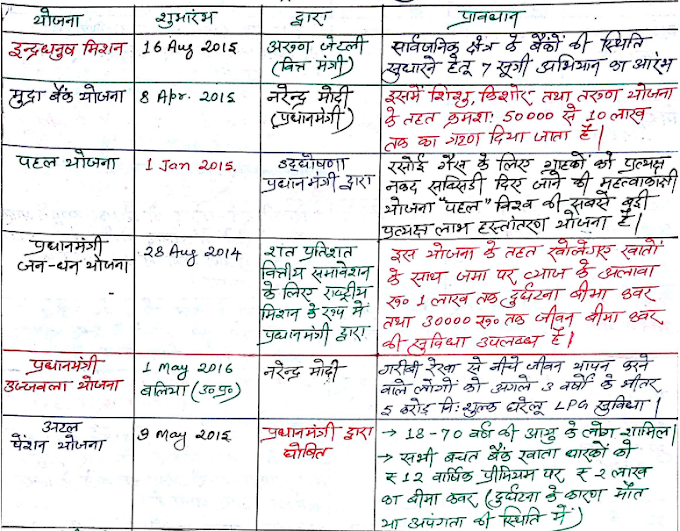 योजना शुभारंभ द्वारा प्रावधान
इन्द्रधनुष मिशन 16 Aug 2015 अरुण जेटली सार्वजनिक क्षेत्र के बैंकों की स्थिति
(वित्त मंत्री) सुधारने हेतु 7 सूत्री अभियान का आरंभ
मुद्रा बैंक योजना 8 Apr. 2015 नरेन्द्र मोदी इसमें शिशु, किशोर, तथा तरुण योजना
(प्रधानमंत्री) के तहत क्रमशः 50000 से 10 लाख
तक का ऋण दिया जाता है।
पहल योजना 1 Jan 2015. उद्घोषणा रसोई गैस के लिए ग्राहकों को प्रत्यक्ष
प्रधानमंत्री द्वारा नकद सब्सिडी दिए जाने की महत्वाकांक्षी
योजना "पहल" विश्व की सबसे बड़ी
प्रत्यक्ष लाभ हस्तांतरण योजना है।
प्रधानमंत्री 28 Aug 2014 शत प्रतिशत इस योजना के तहत खोले गए खातों
जन-धन योजना वित्तीय समावेशन के साथ जमा पर ब्याज के अलावा
के लिए राष्ट्रीय रु० 1 लाख तक दुर्घटना बीमा कवर
मिशन के रूप में तथा 30000 रु० तक जीवन बीमा कवर
प्रधानमंत्री द्वारा की सुविधा उपलब्ध है।
प्रधानमंत्री 1 May 2016 नरेन्द्र मोदी गरीबी रेखा से नीचे जीवन यापन करने
उज्जवला योजना बलिया (उ०प्र०) वाले लोगों को अगले 3 वर्षों के भीतर
5 करोड़ निःशुल्क घरेलू LPG सुविधा।
अटल 9 May 2015 प्रधानमंत्री द्वारा → 18-70 वर्ष की आयु के लोग शामिल।
पेंशन योजना घोषित → सभी बचत बैंक खाता धारकों को
₹ 12 वार्षिक प्रीमियम पर ₹ 2 लाख
का बीमा कवर (दुर्घटना के कारण मौत
या अपंगता की स्थिति में)